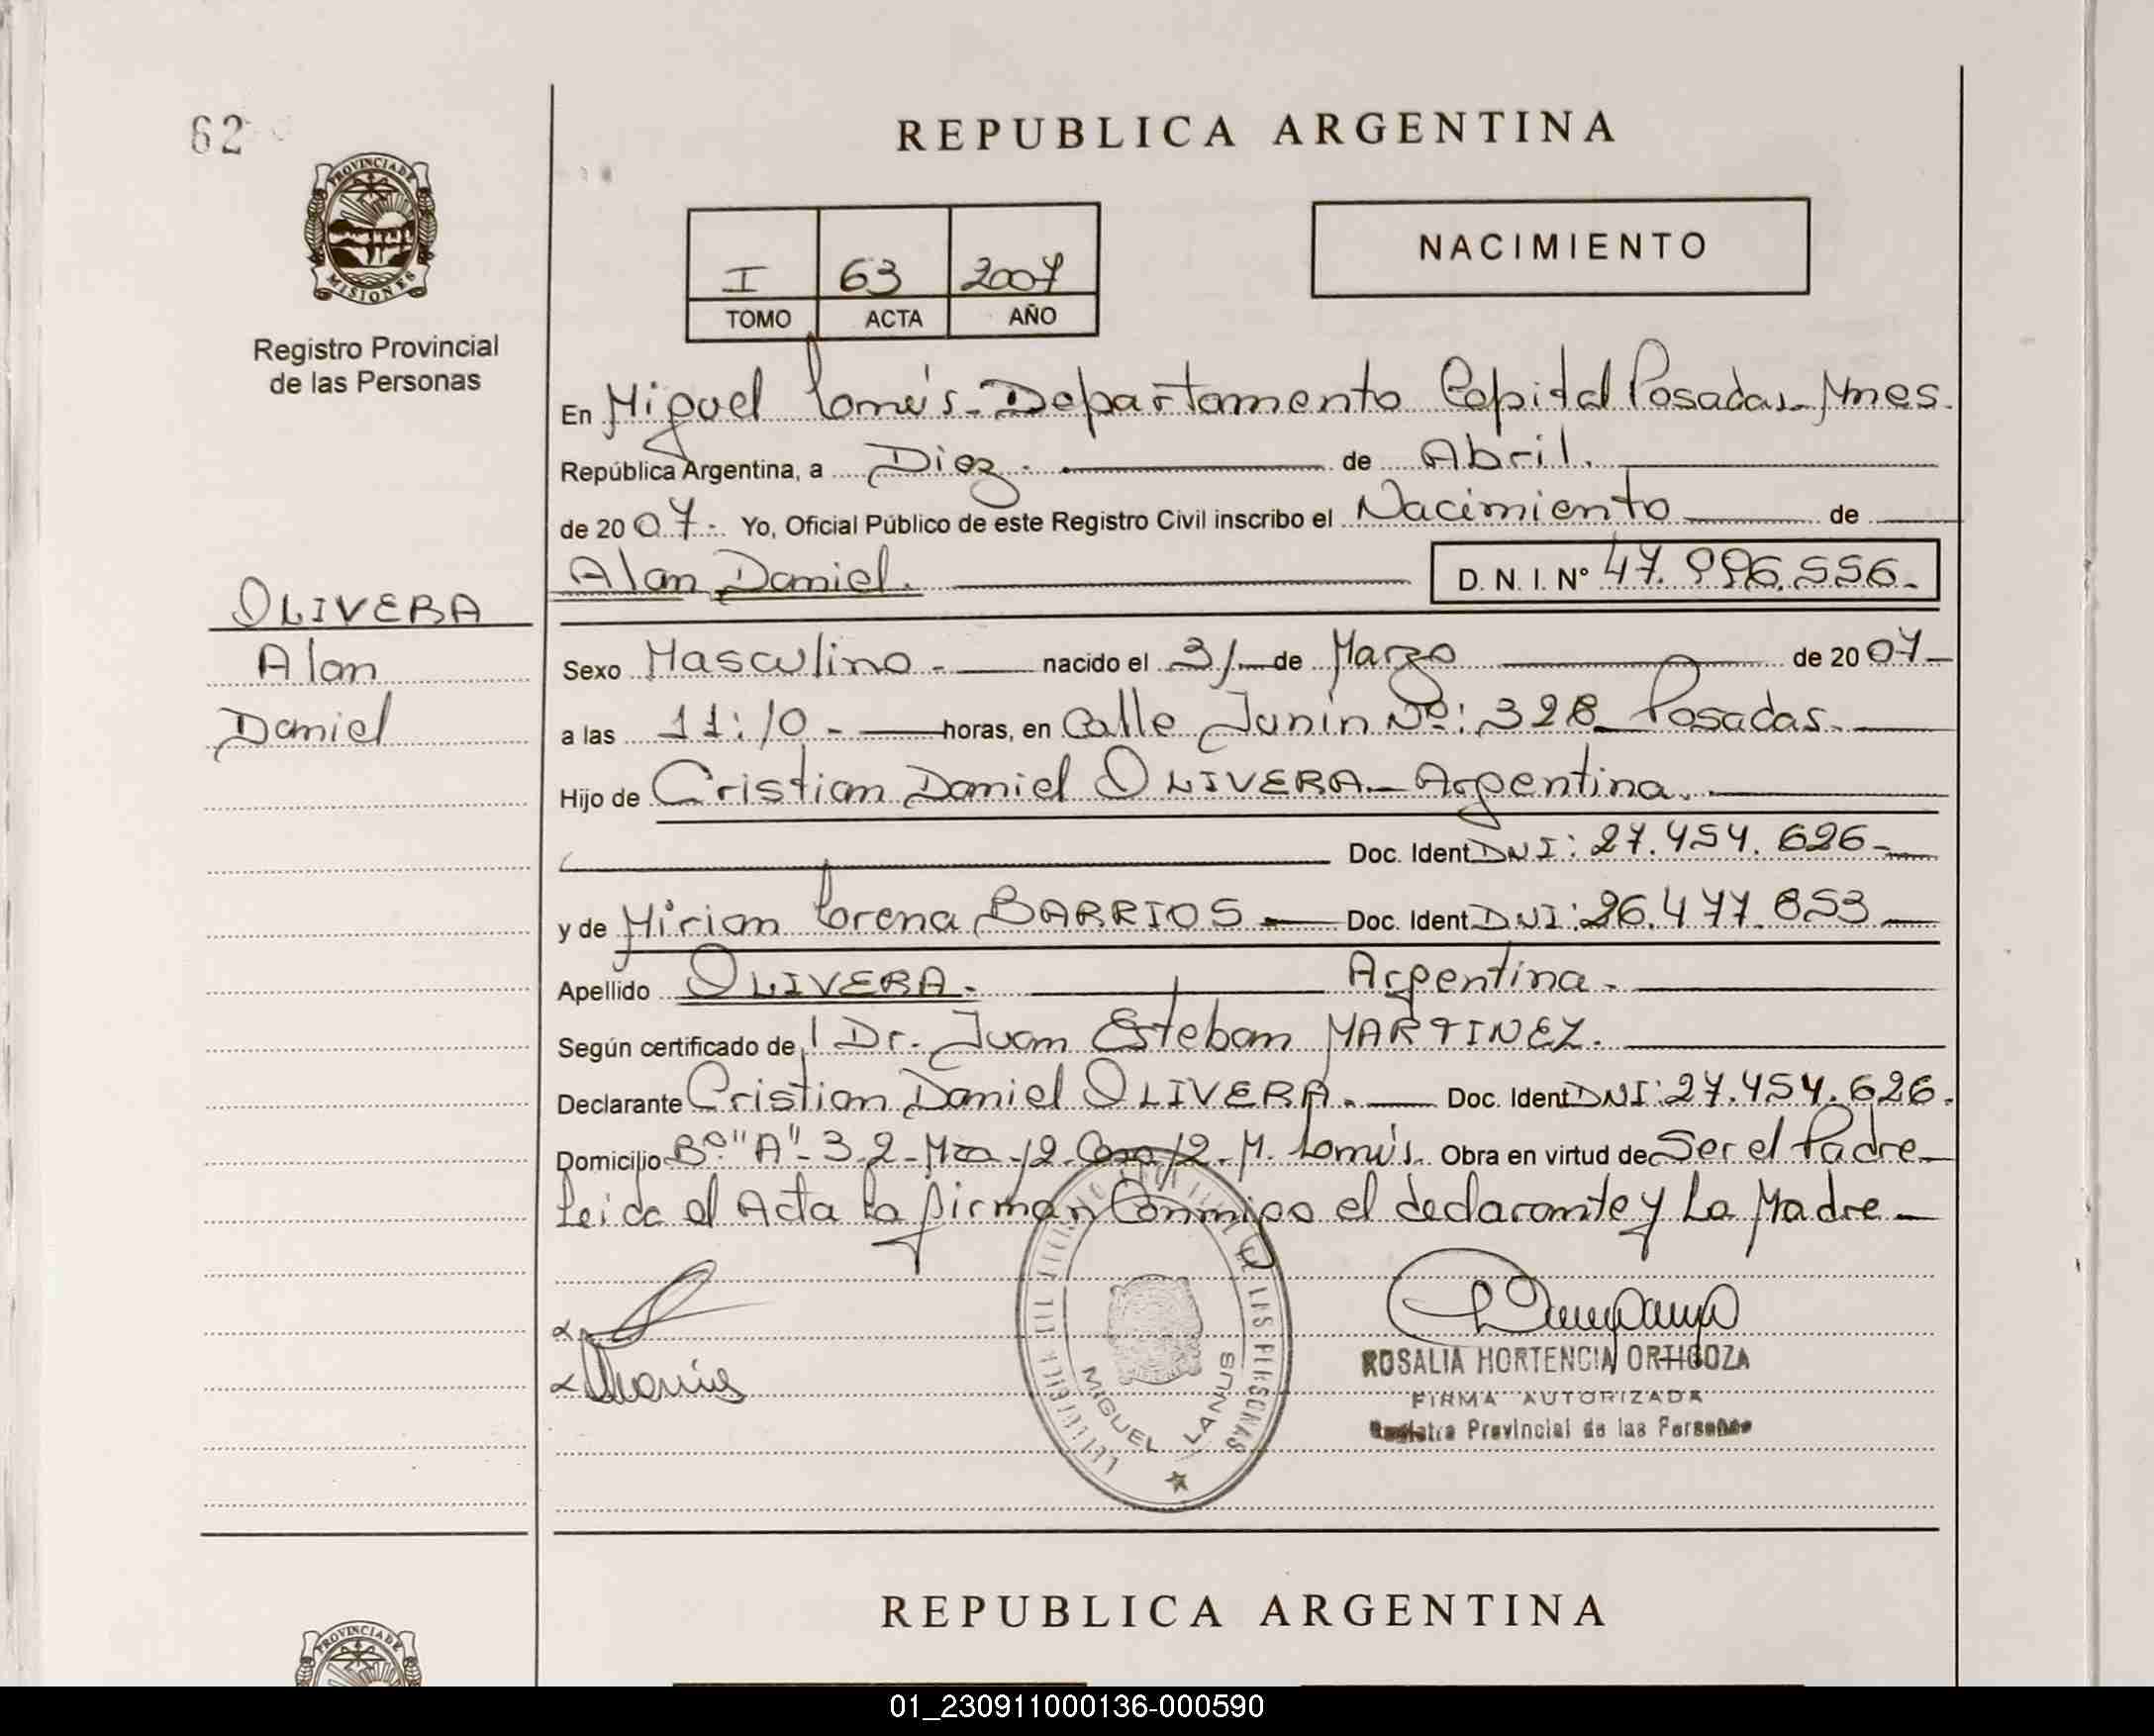 62
REPUBLICA ARGENTINA
PROVINCIA DE
MISIONES
Registro Provincial
de las Personas
I 63 2007
TOMO ACTA AÑO
NACIMIENTO
En Miguel Lanús - Departamento Capital Posadas - Mnes.
República Argentina, a Diez. de Abril.
de 2007.- Yo, Oficial Público de este Registro Civil inscribo el Nacimiento de
Alan Daniel. D. N. I. Nº 47.996.556.-
OLIVERA
Alan
Daniel
Sexo Masculino.- nacido el 31 de Marzo de 2007-
a las 11:10.- horas, en Calle Junín Nº: 328 - Posadas.-
Hijo de Cristian Daniel OLIVERA - Argentina.
Doc. Ident DNI: 27.454.626.-
y de Mirian Lorena BARRIOS - Doc. Ident DNI: 26.477.853
Apellido OLIVERA.- Argentina.-
Según certificado del Dr. Juan Esteban MARTINEZ.
Declarante Cristian Daniel OLIVERA.- Doc. Ident DNI: 27.454.626.
Domicilio Bº "A"- 3.2- Mza 12- Casa 12- M. Lanús. Obra en virtud de Ser el Padre-
Leida el Acta la firman Conmigo el declarante y La Madre -
DE LAS PERSONAS
MIGUEL LANUS
ROSALIA HORTENCIA ORTIGOZA
FIRMA AUTORIZADA
Registro Provincial de las Personas
REPUBLICA ARGENTINA
PROVINCIA DE
01_230911000136-000590